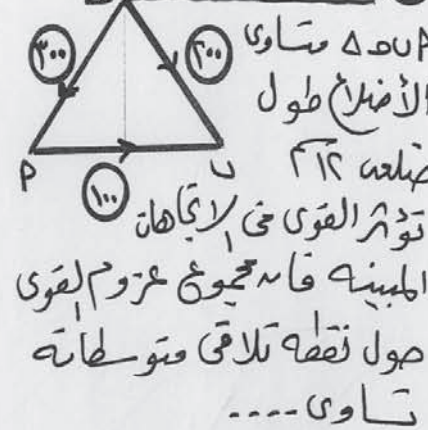 ٣٠٠
٢٠٠
△ ﺣ ب م متساوى
الأضلاع طول
ضلعه ١٢ سم
م
ب
١٠٠
تؤثر القوى فى الاتجاهات
المبينه فان مجموع عزوم القوى
حول نقطه تلاقى متوسطاته
تساوى ....